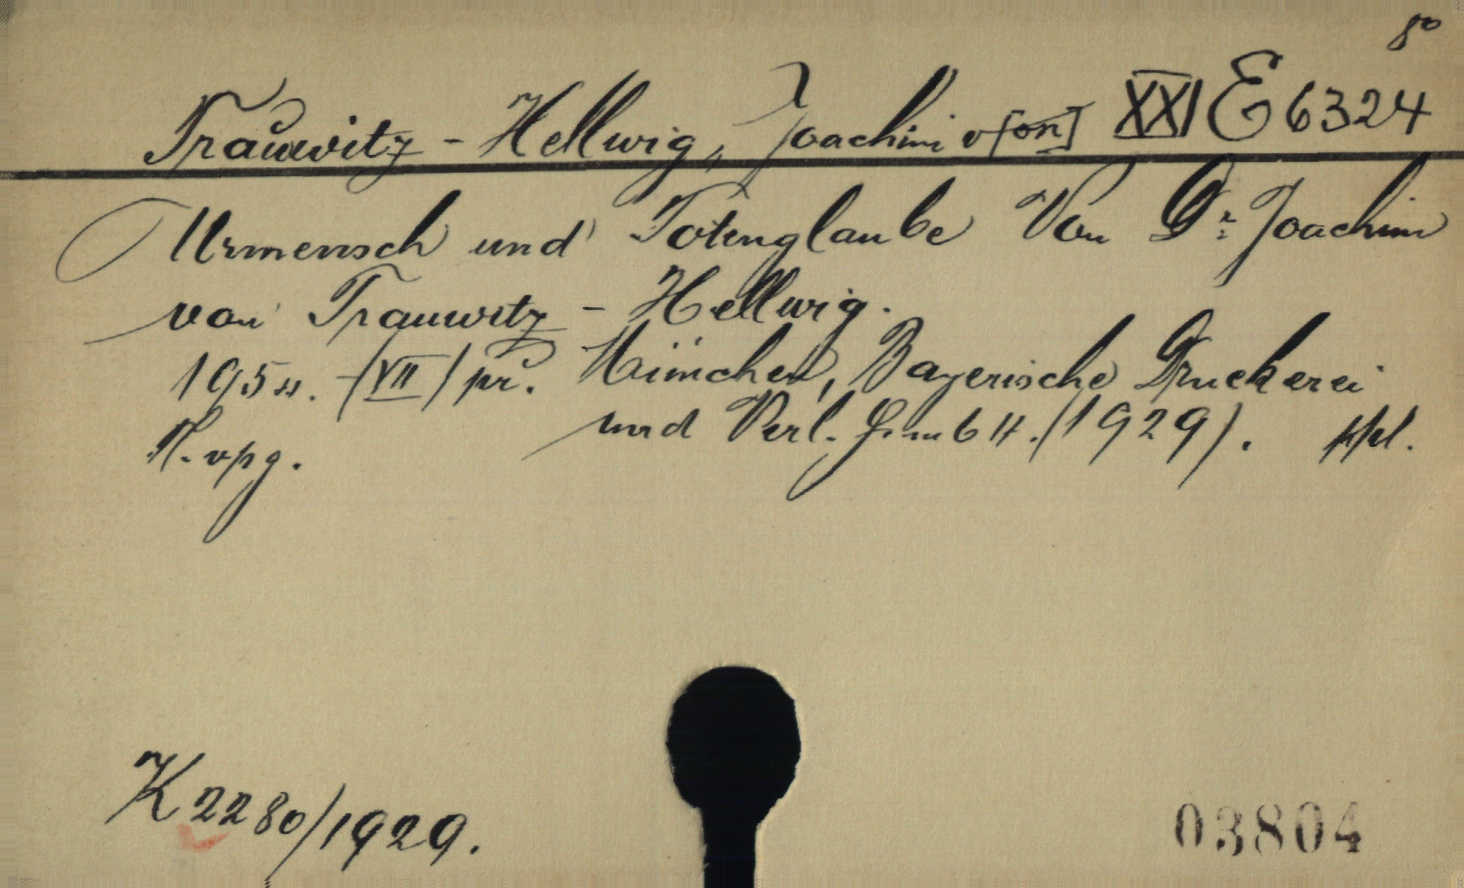 8°
Trauwitz-Hellwig, Joachim v[on] XXI E 6324
Urmensch und Totenglaube Von Dr. Joachim
von Trauwitz-Hellwig.
195 s. (VII) pr. München, Bayerische Druckerei
und Verl. GmbH. (1929). kpl.
N. vpg.
K 2280/1929.
03804